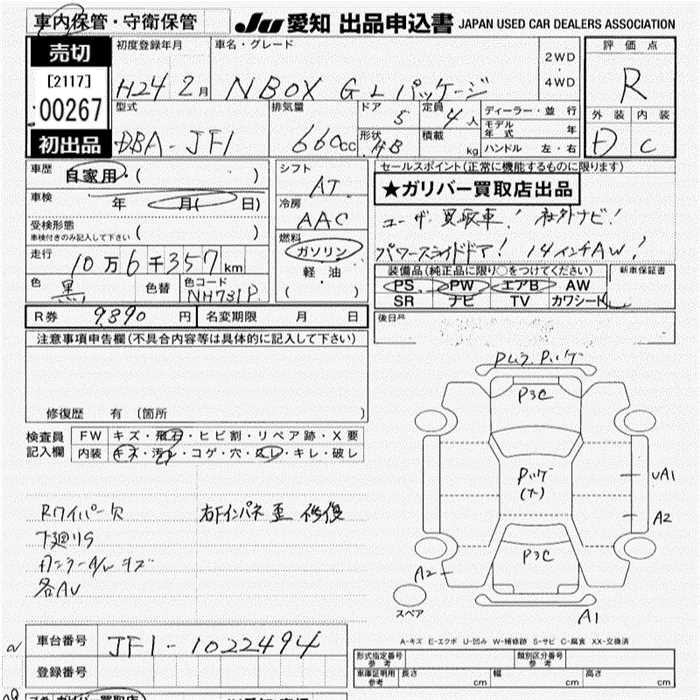 車内保管・守衛保管 JU 愛知 出品申込書 JAPAN USED CAR DEALERS ASSOCIATION
売切
[2117]
00267
初出品
初度登録年月
H24 2月
車名・グレード
NBOX G Lパッケージ
2WD
4WD
評価点
R
型式
DBA-JF1
排気量
660cc
ドア
5
定員
4人
形状
HB
積載
kg
ディーラー・並行
モデル年式 年
ハンドル 左・右
外装 内装
D C
車歴
自家用・( )
車検
年 月( 日)
受検形態
車検付きのみ記入して下さい ( )
走行
10万6千357km
色
黒
色替
色コード
NH731P
シフト
AT
冷房
AAC
燃料
ガソリン
軽・油
( )
セールスポイント(正常に機能するものに限ります)
★ガリバー買取店出品
ユーザー買取車! 社外ナビ!
パワースライドドア! 14インチAW!
装備品(純正品に限り○をつけてください)
PS PW エアB AW
SR ナビ TV カワシート
新車保証書
後日
R券 9,890円 名変期限 月 日
注意事項申告欄(不具合内容等は具体的に記入して下さい)
修復歴 有 (箇所 )
検査員
記入欄
FW キズ・飛石・ヒビ割・リペア跡・X要
内装 キズ・汚れ・コゲ・穴・スレ・キレ・破レ
Rワイパー欠 右Fインパネ歪 修復
下廻りS
A/W キズ
各AU
P3C
(ナ)
P3C
UA1
A2
A2
A1
スペア
A-キズ E-エクボ U-凹み W-補修跡 S-サビ C-腐食 XX-交換済
車台番号 JF1-1022494
登録番号
形式指定番号
参考
類別区分番号
参考
車庫証明用
参考
長さ cm
幅 cm
高さ cm